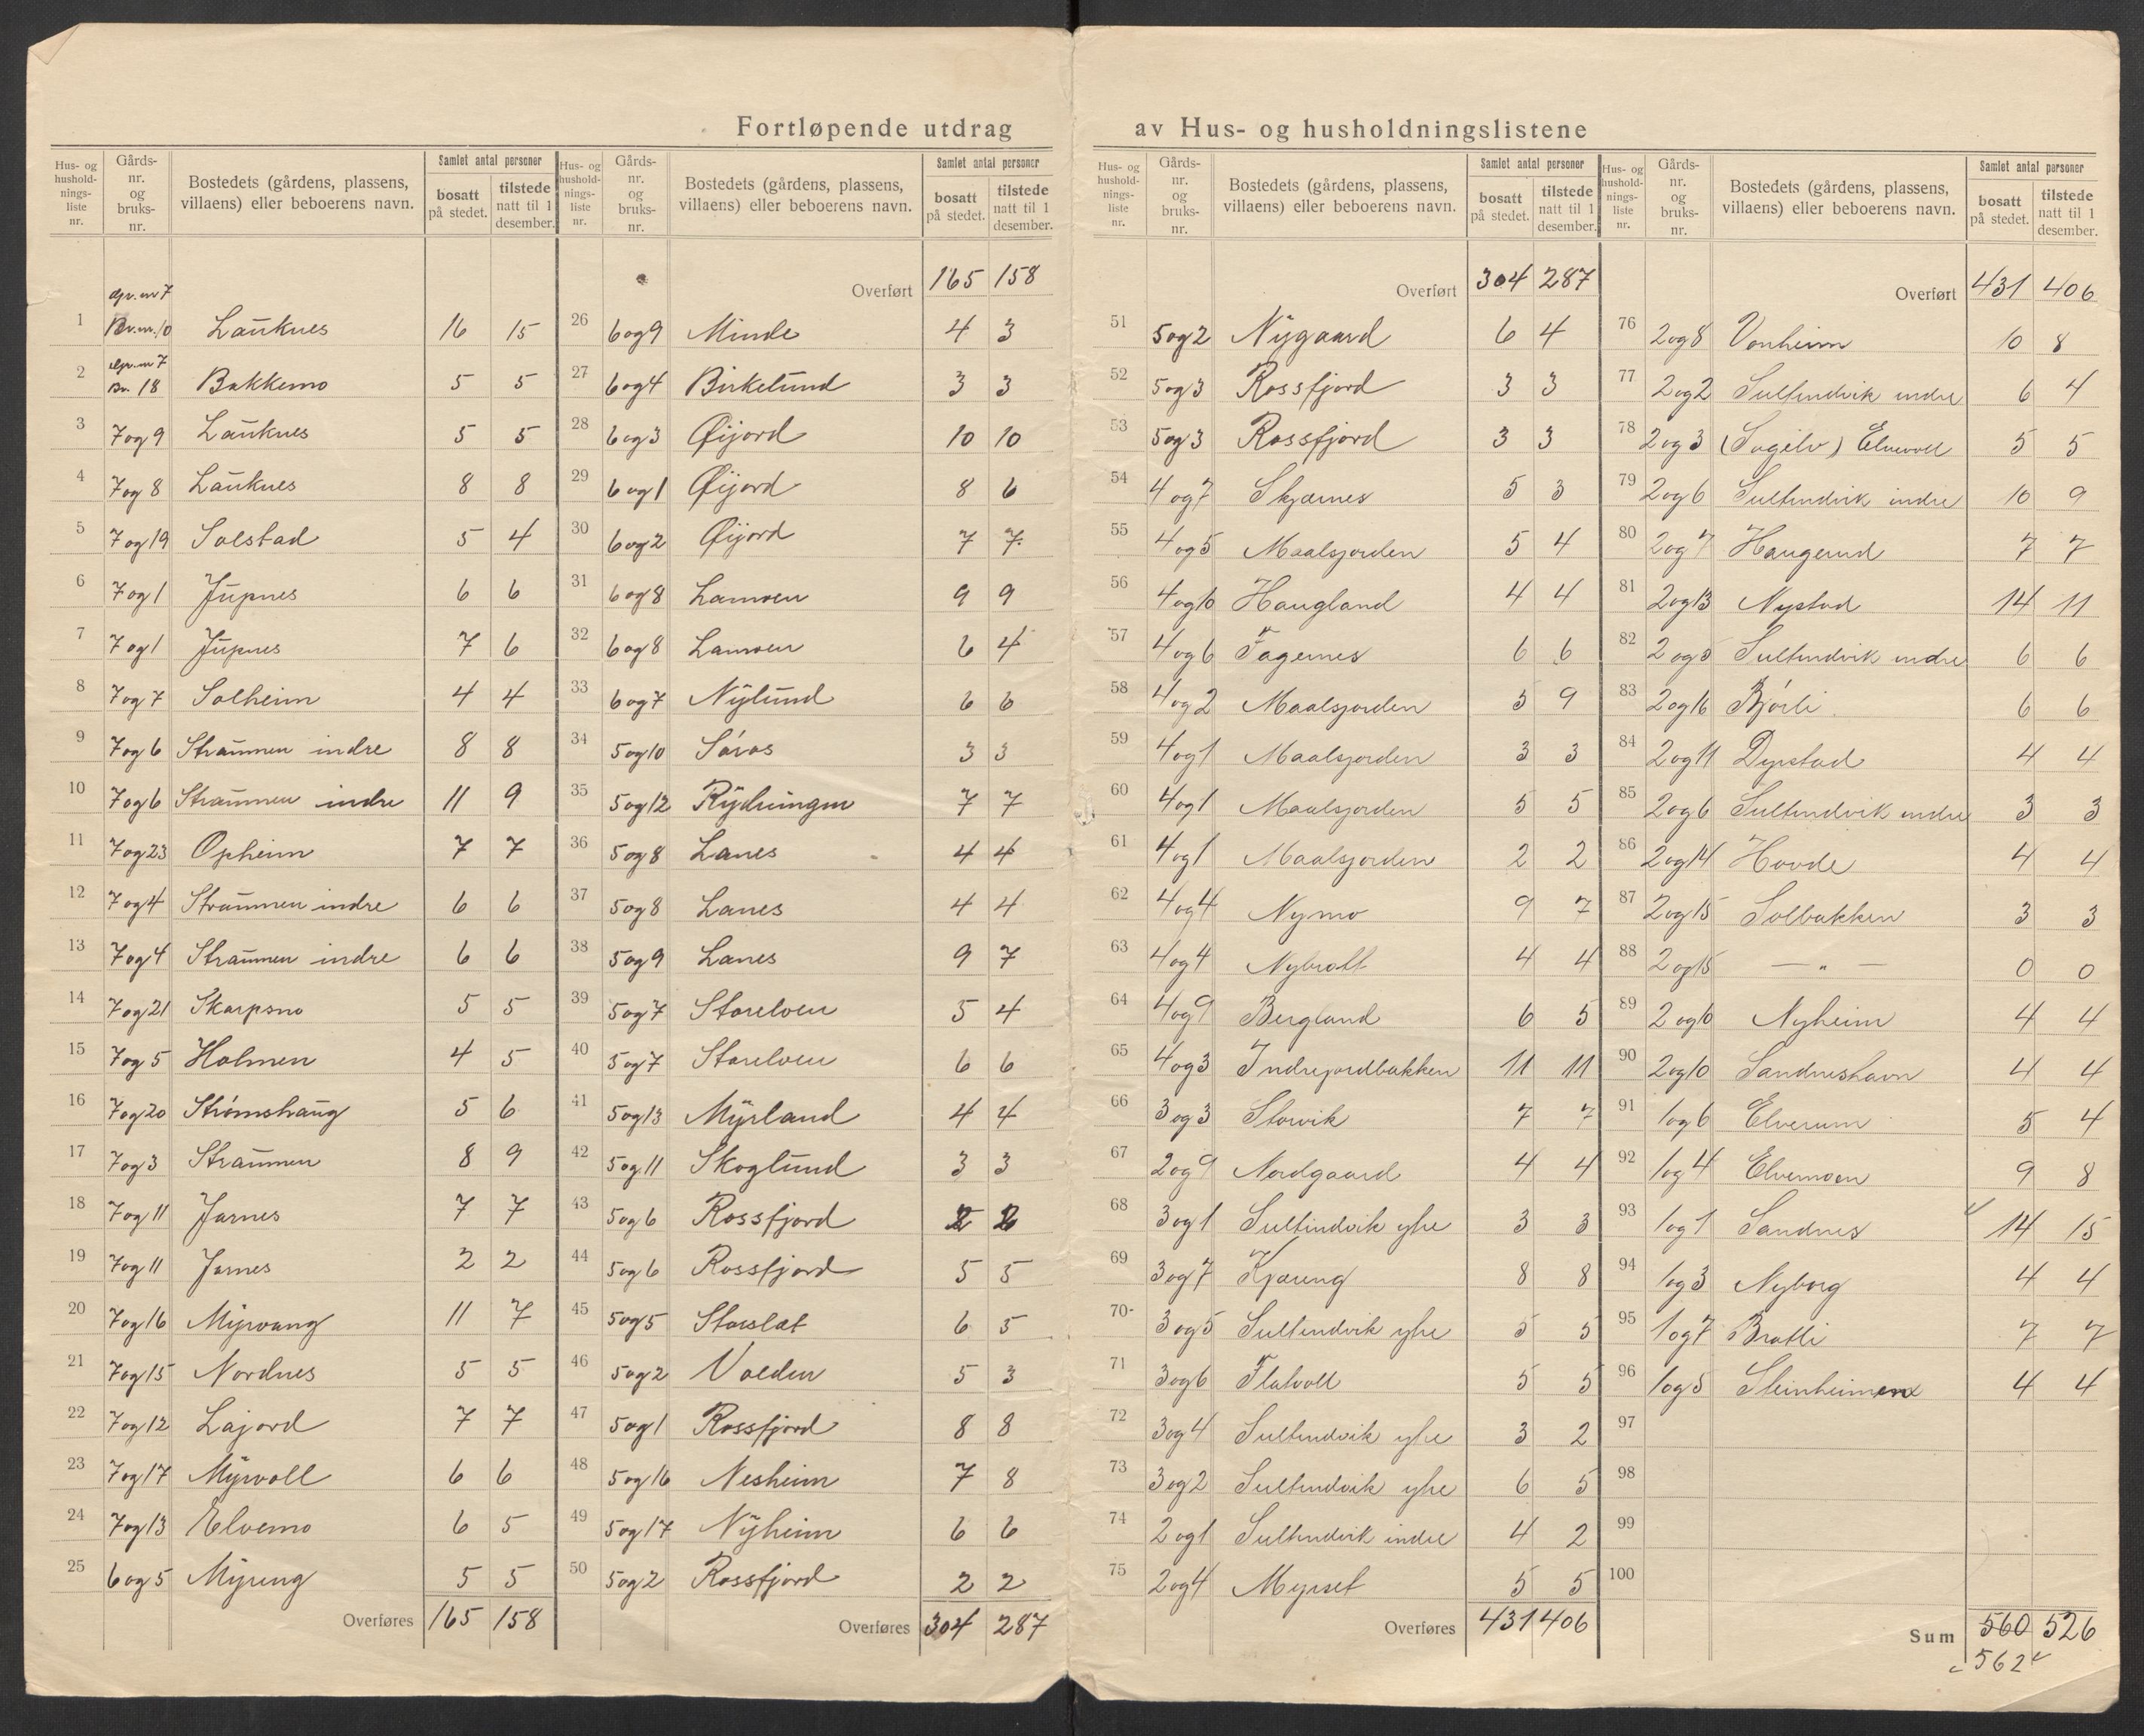 Fortløpende utdrag av Hus- og husholdningslistene
Hus- og hushold-nings-liste nr. | Gårds-nr. og bruks-nr. | Bostedets (gårdens, plassens, villaens) eller beboerens navn. | Samlet antal personer | bosatt på stedet. | tilstede natt til 1 desember.
1 Gr.nr 7 Br.nr. 10 Lauknes 16 15
2 Gr.nr 7 Br. 18 Bakkemo 5 5
3 7og9 Lauknes 5 5
4 7og8 Lauknes 8 8
5 7og19 Solstad 5 4
6 7og1 Jupnes 6 6
7 7og1 Jupnes 7 6
8 7og7 Solheim 4 4
9 7og6 Straumen indre 8 8
10 7og6 Straumen indre 11 9
11 7og23 Opheim 7 7
12 7og4 Straumen indre 6 6
13 7og4 Straumen indre 6 6
14 7og21 Skarpsno 5 5
15 7og5 Holmen 4 5
16 7og20 Strømshaug 5 6
17 7og3 Straumen 8 9
18 7og11 Jarnes 7 7
19 7og11 Jarnes 2 2
20 7og16 Myrvang 11 7
21 7og15 Nordnes 5 5
22 7og12 Lajord 7 7
23 7og17 Myrvoll 6 6
24 7og13 Elvemo 6 5
25 6og5 Myreng 5 5
Overføres 165 158
Hus- og hushold-nings-liste nr. | Gårds-nr. og bruks-nr. | Bostedets (gårdens, plassens, villaens) eller beboerens navn. | Samlet antal personer | bosatt på stedet. | tilstede natt til 1 desember.
Overført 165 158
26 6og9 Minde 4 3
27 6og4 Birkelund 3 3
28 6og3 Øijord 10 10
29 6og1 Øijord 8 6
30 6og2 Øijord 7 7
31 6og8 Lamoen 9 9
32 6og8 Lamoen 6 4
33 6og7 Nylund 6 6
34 5og10 Søras 3 3
35 5og12 Rydningen 7 7
36 5og8 Lanes 4 4
37 5og8 Lanes 4 4
38 5og9 Lanes 9 7
39 5og7 Storelven 5 4
40 5og7 Storelven 6 6
41 5og13 Myrland 4 4
42 5og11 Skoglund 3 3
43 5og6 Rossfjord 2 2
44 5og6 Rossfjord 5 5
45 5og5 Storslet 6 5
46 5og2 Volden 5 3
47 5og1 Rossfjord 8 8
48 5og16 Nesheim 7 8
49 5og17 Nyheim 6 6
50 5og2 Rossfjord 2 2
Overføres 304 287
Hus- og hushold-nings-liste nr. | Gårds-nr. og bruks-nr. | Bostedets (gårdens, plassens, villaens) eller beboerens navn. | Samlet antal personer | bosatt på stedet. | tilstede natt til 1 desember.
Overført 304 287
51 5og2 Nygaard 6 4
52 5og3 Rossfjord 3 3
53 5og3 Rossfjord 3 3
54 4og7 Skjærnes 5 3
55 4og5 Maalsjorden 5 4
56 4og10 Haugland 4 4
57 4og6 Fagernes 6 6
58 4og2 Maalsjorden 5 9
59 4og1 Maalsjorden 3 3
60 4og1 Maalsjorden 5 5
61 4og1 Maalsjorden 2 2
62 4og4 Nymo 9 7
63 4og4 Nybrott 4 4
64 4og9 Bergland 6 5
65 4og3 Indrejordbakken 11 11
66 3og3 Storvik 7 7
67 2og9 Nordgaard 4 4
68 3og1 Sultindvik ytre 3 3
69 3og7 Kjæreng 8 8
70 3og5 Sultindvik ytre 5 5
71 3og6 Flatvoll 5 5
72 3og4 Sultindvik ytre 3 2
73 3og2 Sultindvik ytre 6 5
74 2og1 Sultindvik indre 4 2
75 2og4 Myrset 5 5
Overføres 431 406
Hus- og hushold-nings-liste nr. | Gårds-nr. og bruks-nr. | Bostedets (gårdens, plassens, villaens) eller beboerens navn. | Samlet antal personer | bosatt på stedet. | tilstede natt til 1 desember.
Overført 431 406
76 2og8 Vonheim 10 8
77 2og2 Sultindvik indre 6 4
78 2og3 (Sagelv) Elvevoll 5 5
79 2og6 Sultindvik indre 10 9
80 2og7 Haugerud 7 7
81 2og13 Nystad 14 11
82 2og5 Sultindvik indre 6 6
83 2og16 Bjørli 6 6
84 2og11 Dyrstad 4 4
85 2og6 Sultindvik indre 3 3
86 2og14 Hovde 4 4
87 2og15 Solbakken 3 3
88 2og15 — „ — 0 0
89 2og10 Nyheim 4 4
90 2og10 Sandneshavn 4 4
91 1og6 Elverum 5 4
92 1og4 Elvemoen 9 8
93 1og1 Sandnes 14 15
94 1og3 Nyborg 4 4
95 1og7 Bratli 7 7
96 1og5 Steinheimen 4 4
97
98
99
100
Sum 560 526
562